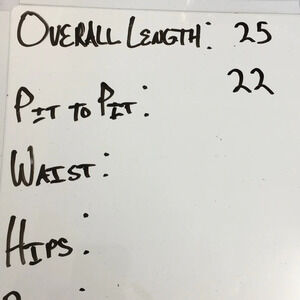 OVERALL LENGTH: 25
PIT TO PIT: 22
WAIST:
HIPS: